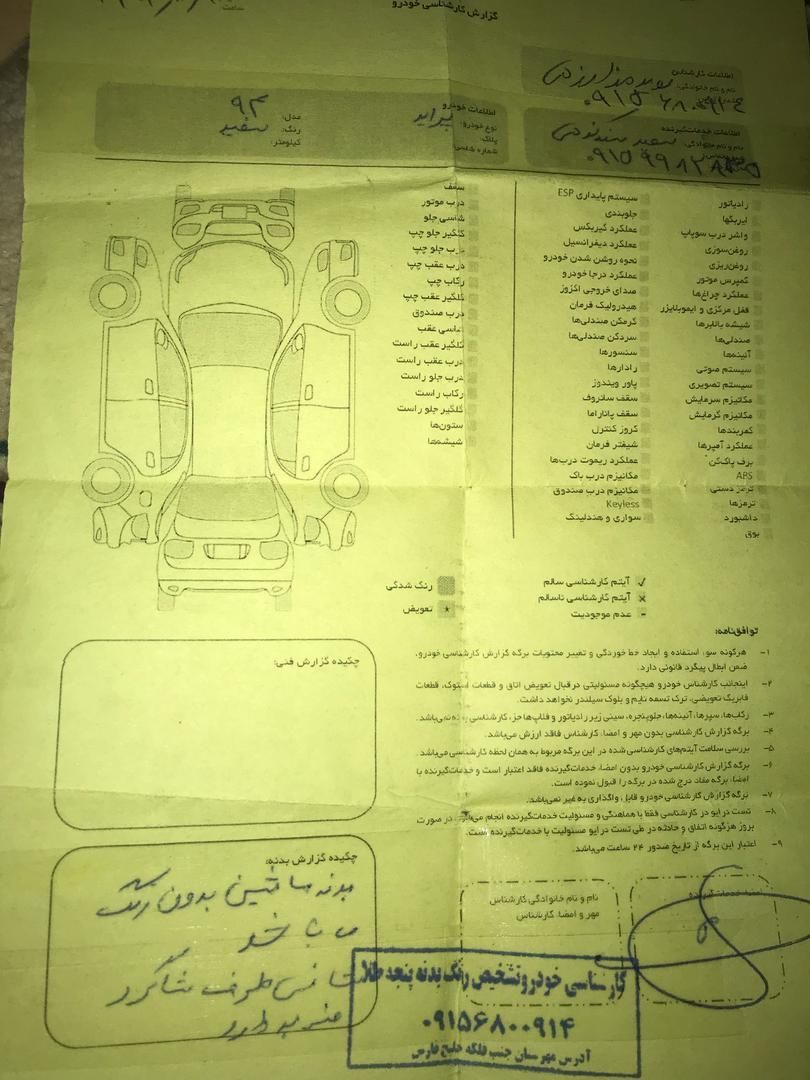 گزارش کارشناسی خودرو
ساعت
اطلاعات کارشناس
نام و نام خانوادگی:
اطلاعات خدمات‌گیرنده
نام و نام خانوادگی: سعید
اطلاعات خودرو
نوع خودرو: پراید
پلاک:
شماره شاسی:
مدل: ۹۴
رنگ: سفید
کیلومتر:
رادیاتور
ایربگها
واشر درب سوپاپ
روغن‌سوزی
روغن‌ریزی
کمپرس موتور
عملکرد چراغ‌ها
قفل مرکزی و ایموبلایزر
شیشه بالابرها
صندلی‌ها
آئینه‌ها
سیستم صوتی
سیستم تصویری
مکانیزم سرمایش
مکانیزم گرمایش
کمربندها
عملکرد آمپرها
برف پاک‌کن
ABS
ترمز دستی
ترمزها
داشبورد
بوق
سیستم پایداری ESP
جلوبندی
عملکرد گیربکس
عملکرد دیفرانسیل
نحوه روشن شدن خودرو
عملکرد درجا خودرو
صدای خروجی اگزوز
هیدرولیک فرمان
گرمکن صندلی‌ها
سردکن صندلی‌ها
سنسورها
رادارها
پاور ویندوز
سقف سانروف
سقف پاناراما
کروز کنترل
شیفتر فرمان
عملکرد ریموت درب‌ها
مکانیزم درب باک
مکانیزم درب صندوق
Keyless
سواری و هندلینگ
سقف
درب موتور
شاسی جلو
گلگیر جلو چپ
درب جلو چپ
درب عقب چپ
رکاب چپ
گلگیر عقب چپ
درب صندوق
شاسی عقب
گلگیر عقب راست
درب عقب راست
درب جلو راست
رکاب راست
گلگیر جلو راست
ستون‌ها
شیشه‌ها
✓ آیتم کارشناسی سالم
× آیتم کارشناسی ناسالم
- عدم موجودیت
رنگ شدگی
* تعویض
توافق‌نامه:
۱- هرگونه سوء استفاده و ایجاد خط خوردگی و تغییر محتویات برگه گزارش کارشناسی خودرو،
ضمن ابطال پیگرد قانونی دارد.
۲- اینجانب کارشناس خودرو هیچگونه مسئولیتی در قبال تعویض اتاق و قطعات استوک، قطعات
فابریک تعویضی، ترک تسمه تایم و بلوک سیلندر نخواهد داشت.
۳- رکاب‌ها، سپرها، آئینه‌ها، جلوپنجره، سینی زیر رادیاتور و قلاب‌ها جز، کارشناسی بدنه نمی‌باشد.
۴- برگه گزارش کارشناسی بدون مهر و امضا، کارشناس فاقد ارزش می‌باشد.
۵- بررسی سلامت آیتم‌های کارشناسی شده در این برگه مربوط به همان لحظه کارشناسی می‌باشد.
۶- برگه گزارش کارشناسی خودرو بدون امضا، خدمات‌گیرنده فاقد اعتبار است و خدمات‌گیرنده با
امضا، برگه مفاد درج شده در برگه را قبول نموده است.
۷- برگه گزارش کارشناسی خودرو قابل واگذاری به غیر نمی‌باشد.
۸- تست درایو در کارشناسی فقط با هماهنگی و مسئولیت خدمات‌گیرنده انجام می‌شود، در صورت
بروز هرگونه اتفاق و حادثه در طی تست درایو مسئولیت با خدمات‌گیرنده است.
۹- اعتبار این برگه از تاریخ صدور ۲۴ ساعت می‌باشد.
چکیده گزارش فنی:
چکیده گزارش بدنه:
بدنه ماشین بدون رنگ
می باشد
طرف شاگرد
امضا، خدمات‌گیرنده
نام و نام خانوادگی کارشناس
مهر و امضا، کارشناس
کارشناسی خودرو تشخیص رنگ بدنه پنجه طلا
۰۹۱۵۶۸۰۰۹۱۴
آدرس مهرستان جنب فلکه خلیج فارس